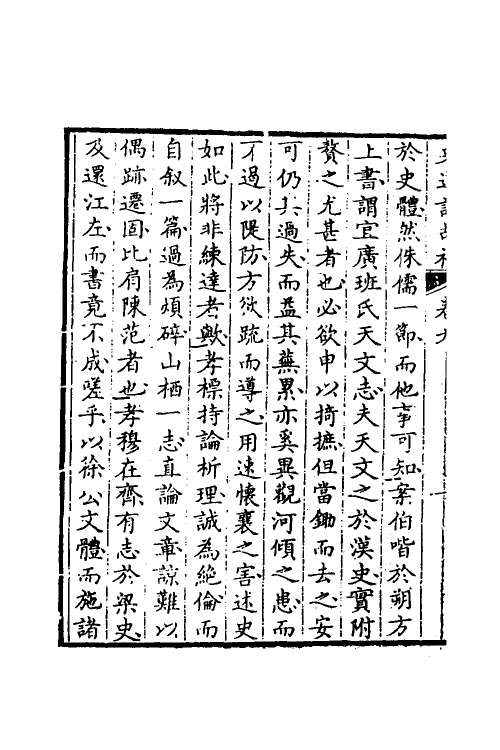 於史體然侏儒一節而他事可知案伯喈於朔方
上書謂宜廣班氏天文志夫天文之於漢史實附
贅之尤甚者也必欲申以掎摭但當鋤而去之安
可仍其過失而益其蕪累亦奚異觀河傾之患而
不過以隄防方欲疏而導之用速懷襄之害述史
如此將非練達者歟孝標持論析理誠為絶倫而
自叙一篇過為煩碎山栖一志直論文章諒難以
偶跡遷固比肩陳范者也孝穆在齊有志於梁史
及還江左而書竟不成嗟乎以徐公文體而施諸